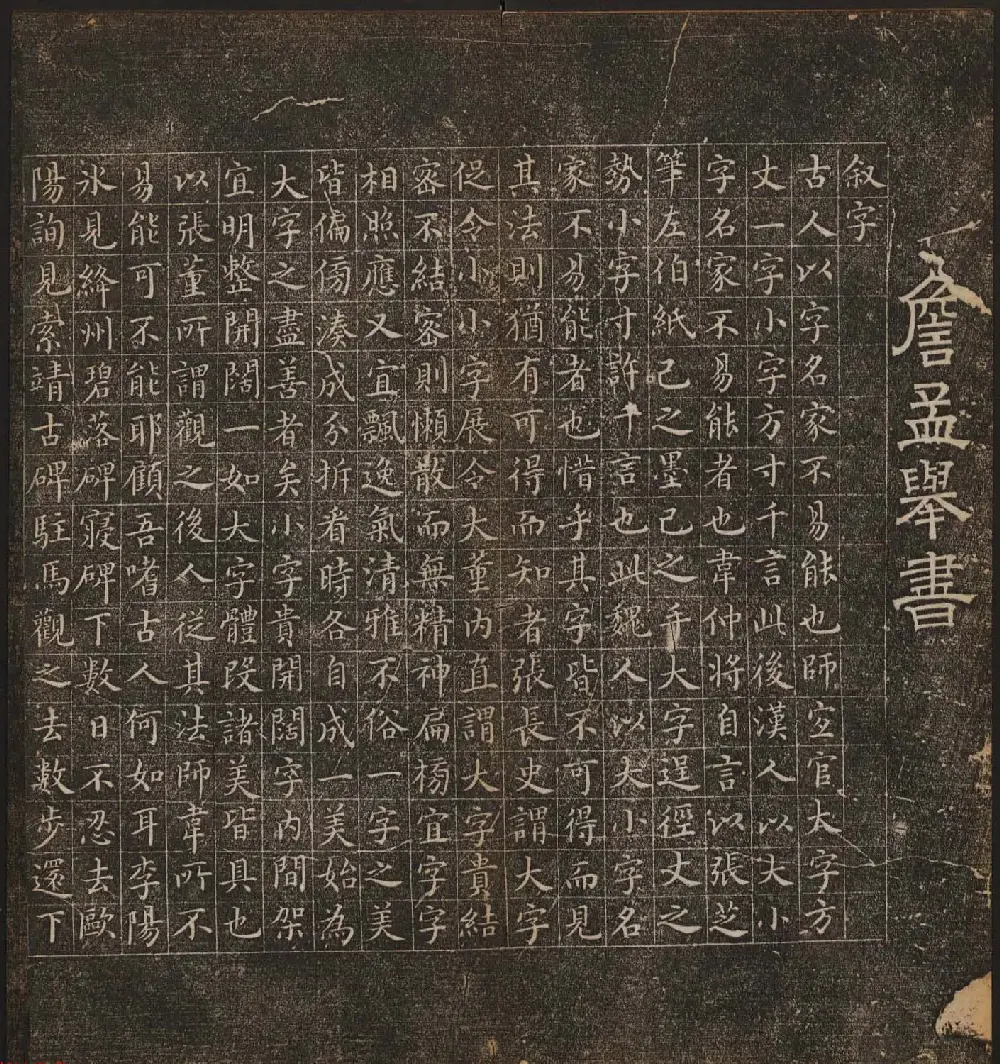 詹孟舉書
叙字
古人以字名家不易能也師宜官大字方
丈一字小字方寸千言此後漢人以大小
字名家不易能者也韋仲將自言以張芝
筆左伯紙己之墨己之手大字逞徑丈之
勢小字寸許千言也此魏人以大小字名
家不易能者也惜乎其字皆不可得而見
其法則猶有可得而知者張長史謂大字
促令小小字展令大董內直謂大字貴結
密不結密則懶散而無精神扁榜宜字字
相照應又宜飄逸氣清雅不俗一字之美
皆偏傍湊成分拆看時各自成一美始為
大字之盡善者矣小字貴開闊字內間架
宜明整開闊一如大字體段諸美皆具也
以張董所謂觀之後人從其法師韋所不
易能可不能耶顧吾嗜古人何如耳李陽
氷見絳州碧落碑寢碑下數日不忍去歐
陽詢見索靖古碑駐馬觀之去數步還下